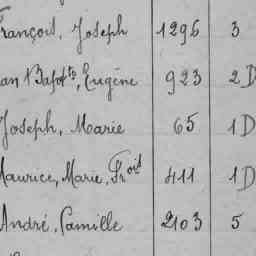 François, Joseph 1296 3
an Bapte, Eugène 923 2D
Joseph, Marie 65 1D
Maurice, Marie, Frois 411 1D
André, Camille 2103 5